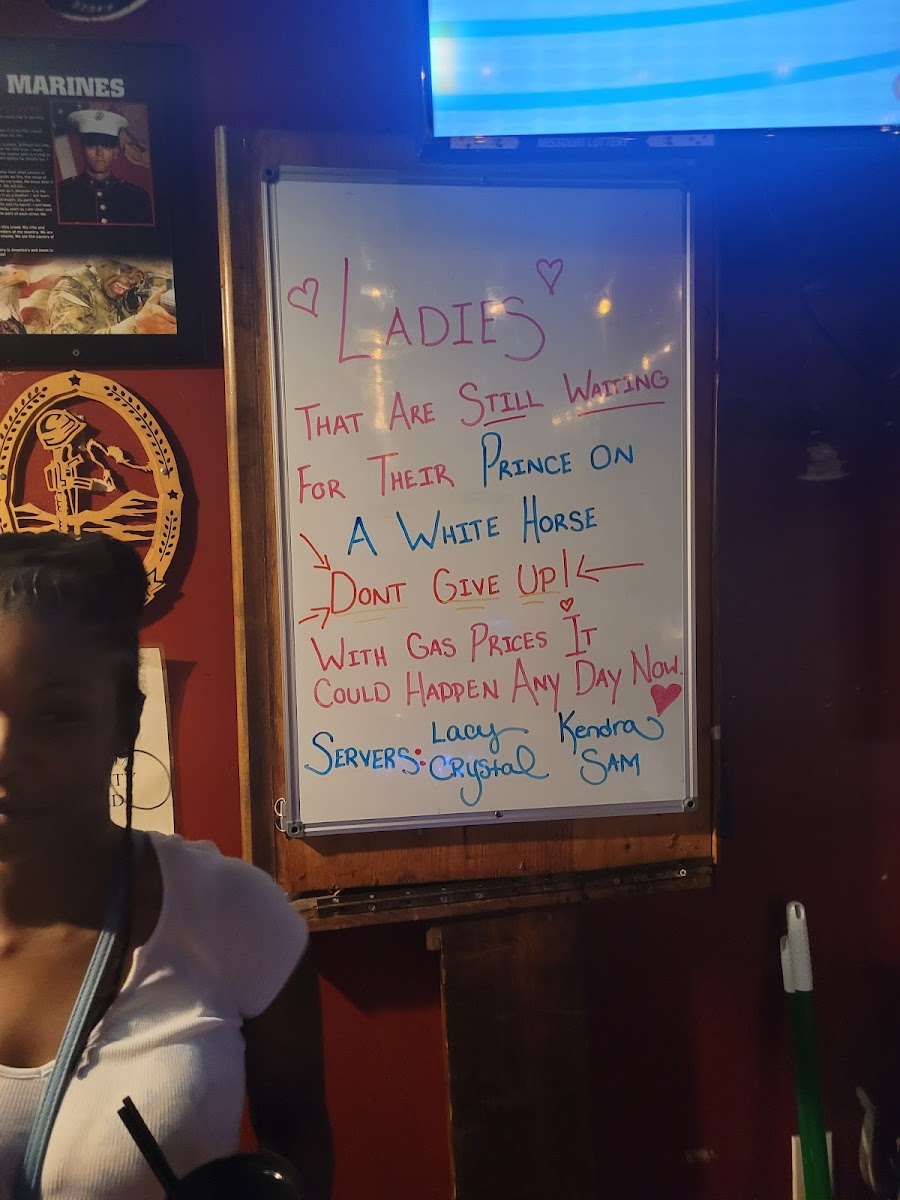 MARINES
MISSOURI LOTTERY
LADIES
THAT ARE STILL WAITING
FOR THEIR PRINCE ON
A WHITE HORSE
DONT GIVE UP!
WITH GAS PRICES IT
COULD HAPPEN ANY DAY NOW.
SERVERS: Lacy Kendra
Crystal SAM